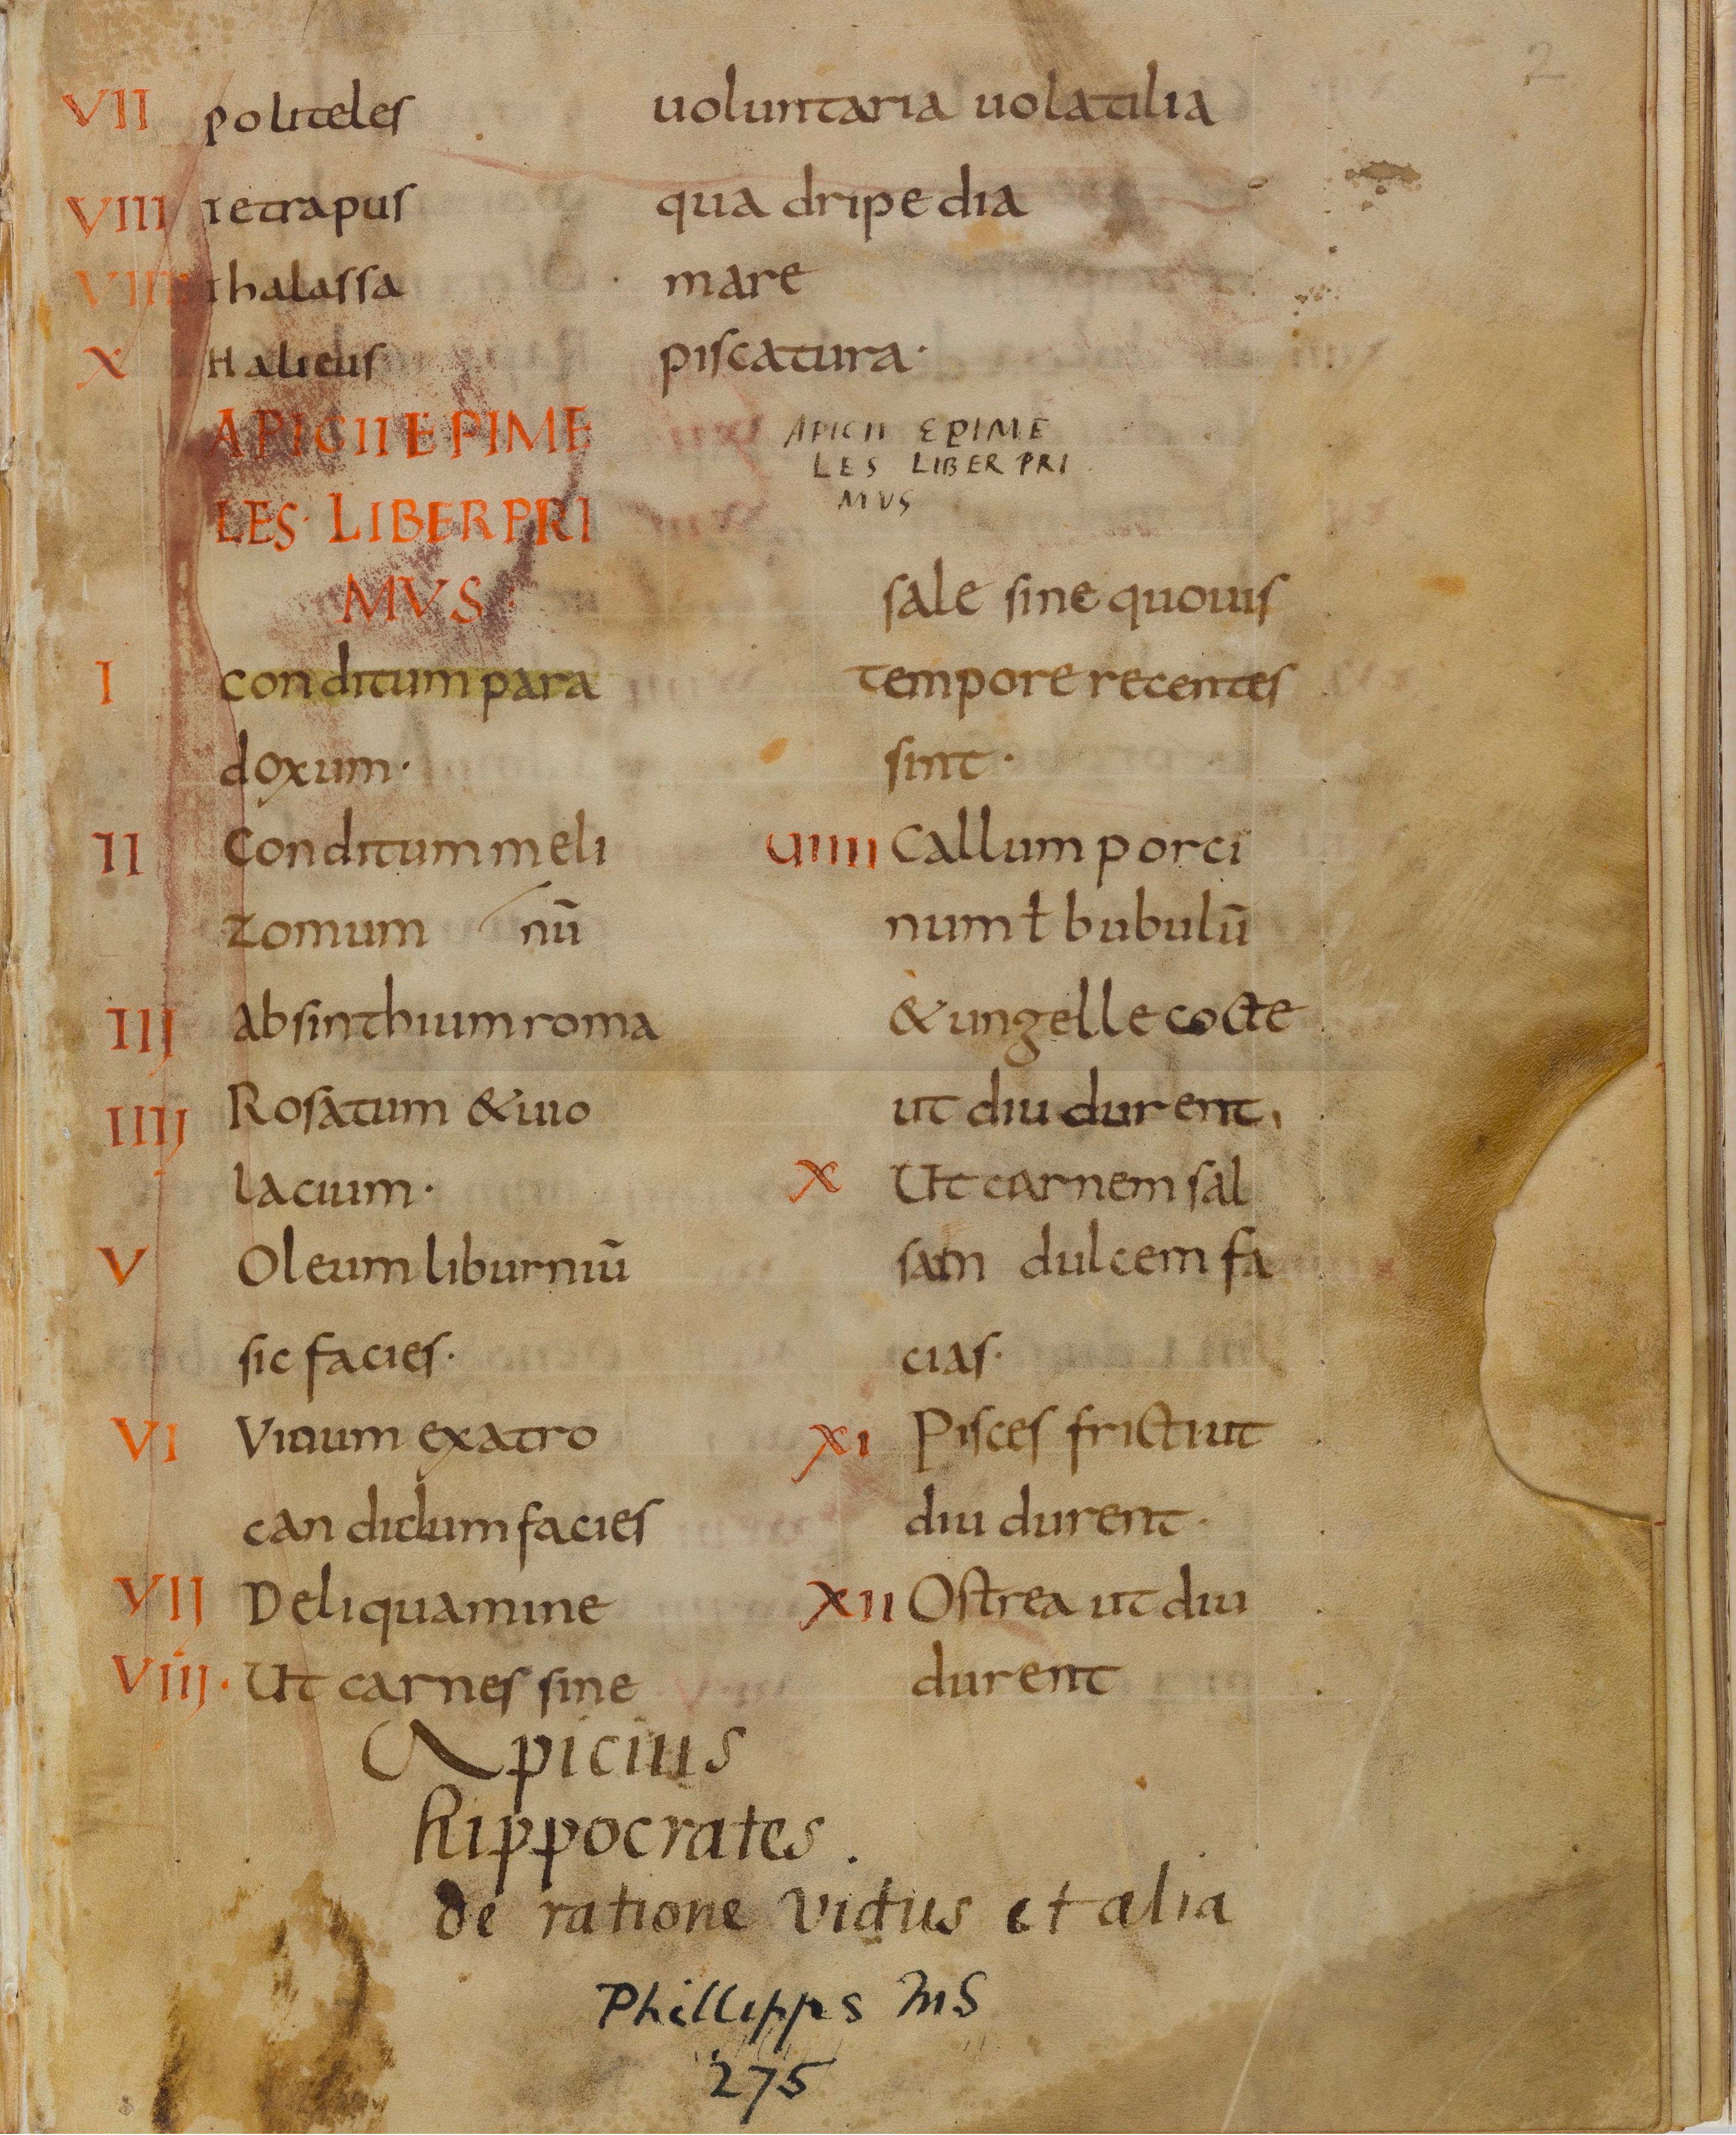 2
VII politeles uoluntaria uolatilia
VIII tetrapus qua dripedia
VIIII thalassa mare
X Halieus piscatura·
APICII EPIME
LES· LIBER PRI
MVS·
APICII EPIME
LES LIBER PRI
MVS
I conditum para
doxum·
II Conditum meli
zomum nū
III absinthium roma
IIII Rosatum & uio
lacium·
V Oleum liburniū
sic facies·
VI Vinum ex atro
candidum facies
VII De liquamine
VIII· Ut carnes sine
sale sine quouis
tempore recentes
sint·
UIIII Callum porci
num ł bubulū
& ungelle cocte
ut diu durent,
X Ut carnem sal
sam dulcem fa
cias·
XI Pisces fricti ut
diu durent·
XII Ostrea ut diu
durent
Apicius
hippocrates.
de ratione victus et alia
Phillipps MS
275